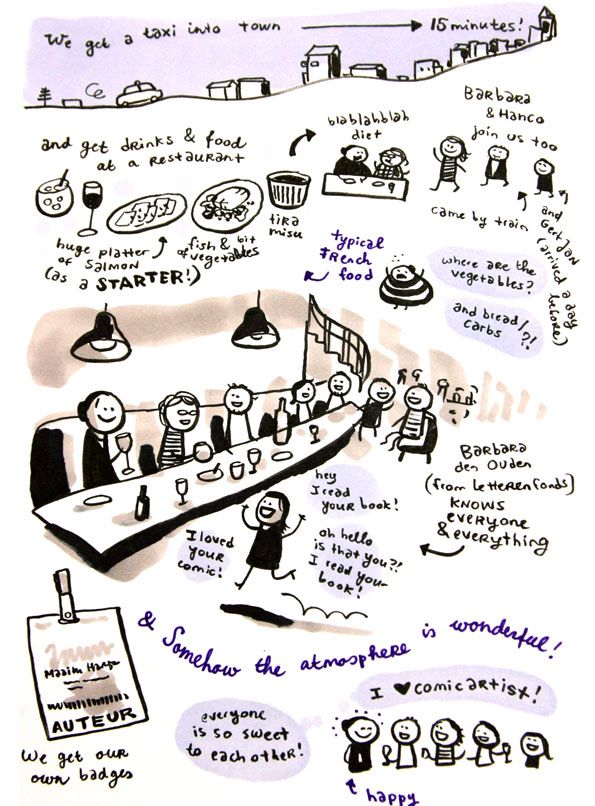 We get a taxi into town
15 minutes!
and get drinks & food
at a restaurant
blablahblah
diet
Barbara
& Hanco
join us too
came by train
and
Gert Jan
(arrived a day
before)
huge platter
of salmon
(as a STARTER!)
fish & bit
of vegetables
tira
misu
typical
French
food
where are the
vegetables?
and bread/
carbs ?!
Barbara
den Ouden
(from Letterenfonds)
KNOWS
everyone
& everything
hey
I read
your book!
I loved
your
comic!
oh hello
is that you?!
I read your
book!
& Somehow the atmosphere is wonderful!
AUTEUR
We get our
own badges
everyone
is so sweet
to each other!
I ♥ comic artist!
happy